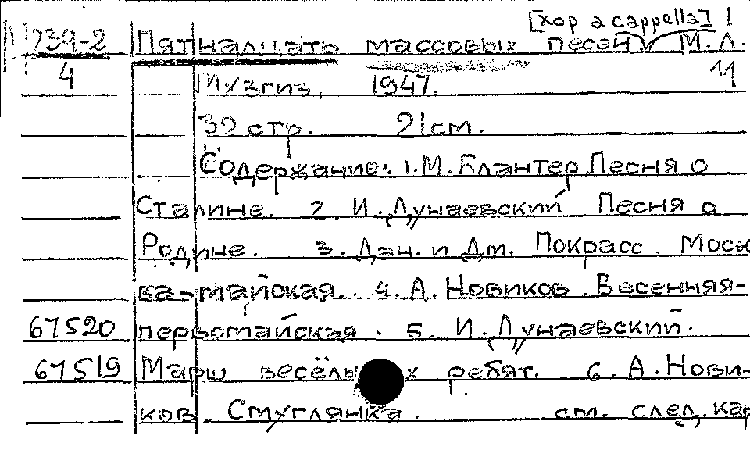 [хор a cappella] 1
739-2 Пятнадцать массовых песен М.Л.
4 Музгиз, 1947. 11
32 стр. 21 см.
Содержание: 1. М. Блантер Песня о
Сталине. 2. И. Дунаевский Песня о
Родине. 3. Дан. и Дм. Покрасс. Моск
ва майская. 4. А. Новиков Весенняя-
67520 первомайская. 5. И. Дунаевский.
67519 Марш весёлых ребят. 6. А. Нови-
ков Смуглянка. см. след. кар